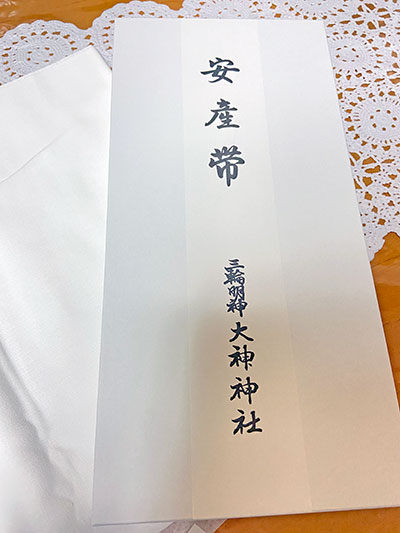 安産帯
三輪明神大神神社